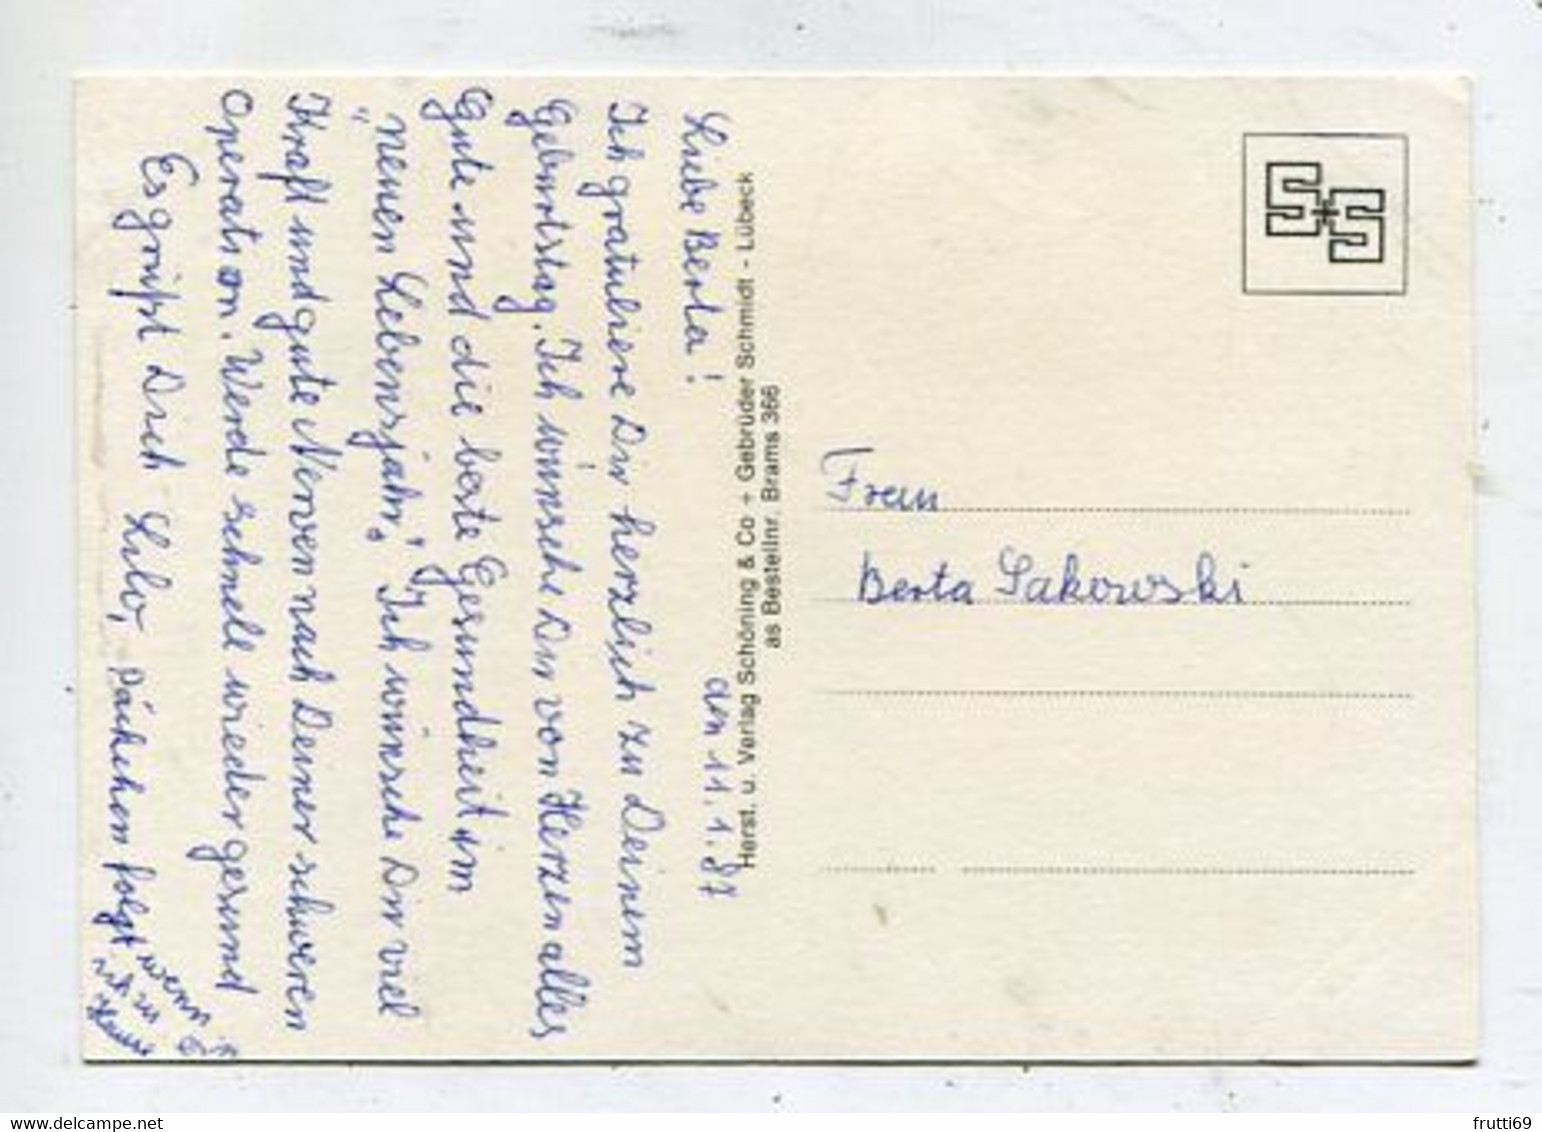 den 11.1.87
Liebe Berta!
Ich gratuliere Dir herzlich zu Deinem
Geburtstag. Ich wünsche Dir von Herzen alles
Gute und die beste Gesundheit im
"neuen Lebensjahr". Ich wünsche Dir viel
Kraft und gute Nerven nach Deiner schweren
Operation. Werde schnell wieder gesund
Es grüßt Dich Lilo, Päckchen folgt wenn
ich zu
Hause
Herst. u. Verlag Schöning & Co + Gebrüder Schmidt - Lübeck
as Bestellnr. Brams 366
S+S
Frau
Berta Sakowski
frutti69